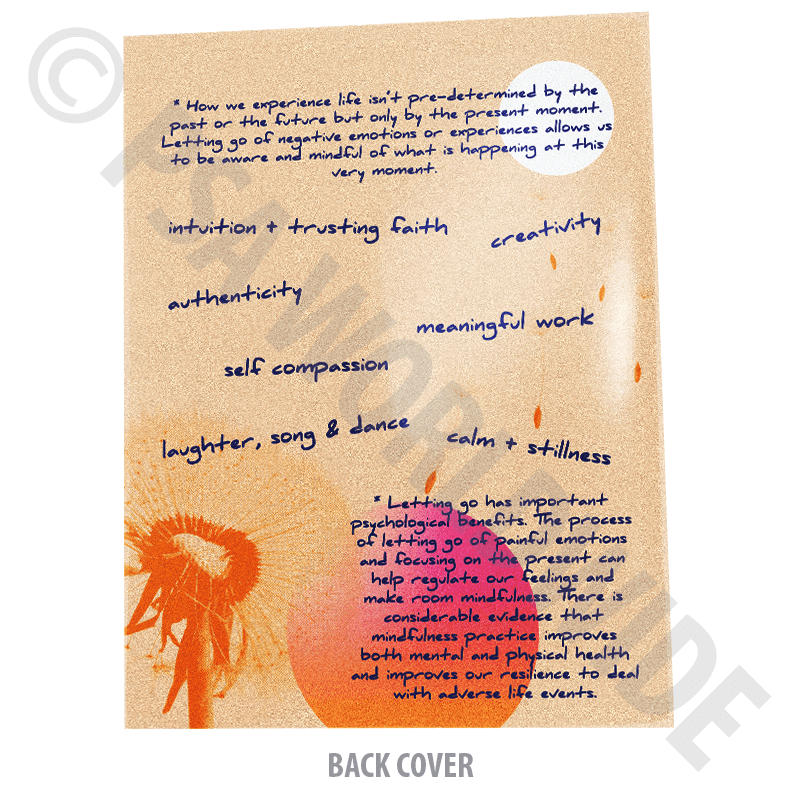 * How we experience life isn't pre-determined by the
past or the future but only by the present moment.
Letting go of negative emotions or experiences allows us
to be aware and mindful of what is happening at this
very moment.
intuition + trusting faith
creativity
authenticity
meaningful work
self compassion
laughter, song & dance
calm + stillness
* Letting go has important
psychological benefits. The process
of letting go of painful emotions
and focusing on the present can
help regulate our feelings and
make room mindfulness. There is
considerable evidence that
mindfulness practice improves
both mental and physical health
and improves our resilience to deal
with adverse life events.
© PSA WORLDWIDE
BACK COVER